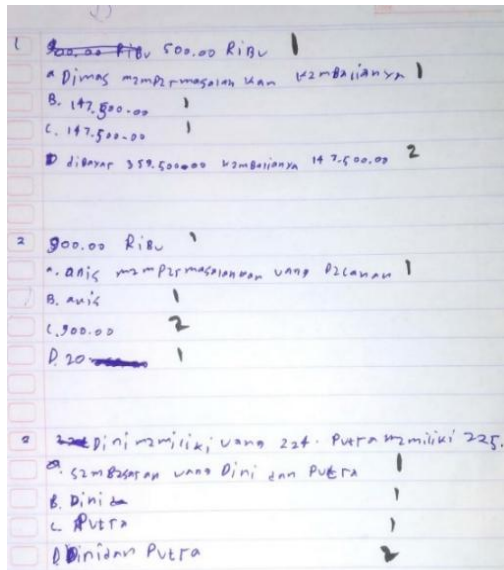 1 500.00 RiBu 1
a Dimas mempermasalah kan kembalianya 1
B. 147.500.00 1
C. 147.500.00 1
D diBayar 359.500.00 kemBalianya 147.500.00 2
2 900.00 RiBu 1
a. anis mempermasalahkan uang Pecahan 1
B. anis 1
C. 900.00 2
D. 20 1
Dini memiliki uang 224. Putra memiliki 225.
a. semBesaran uang Dini dan Putra 1
B. Dini 1
C Putra 1
D Dini dan Putra 2